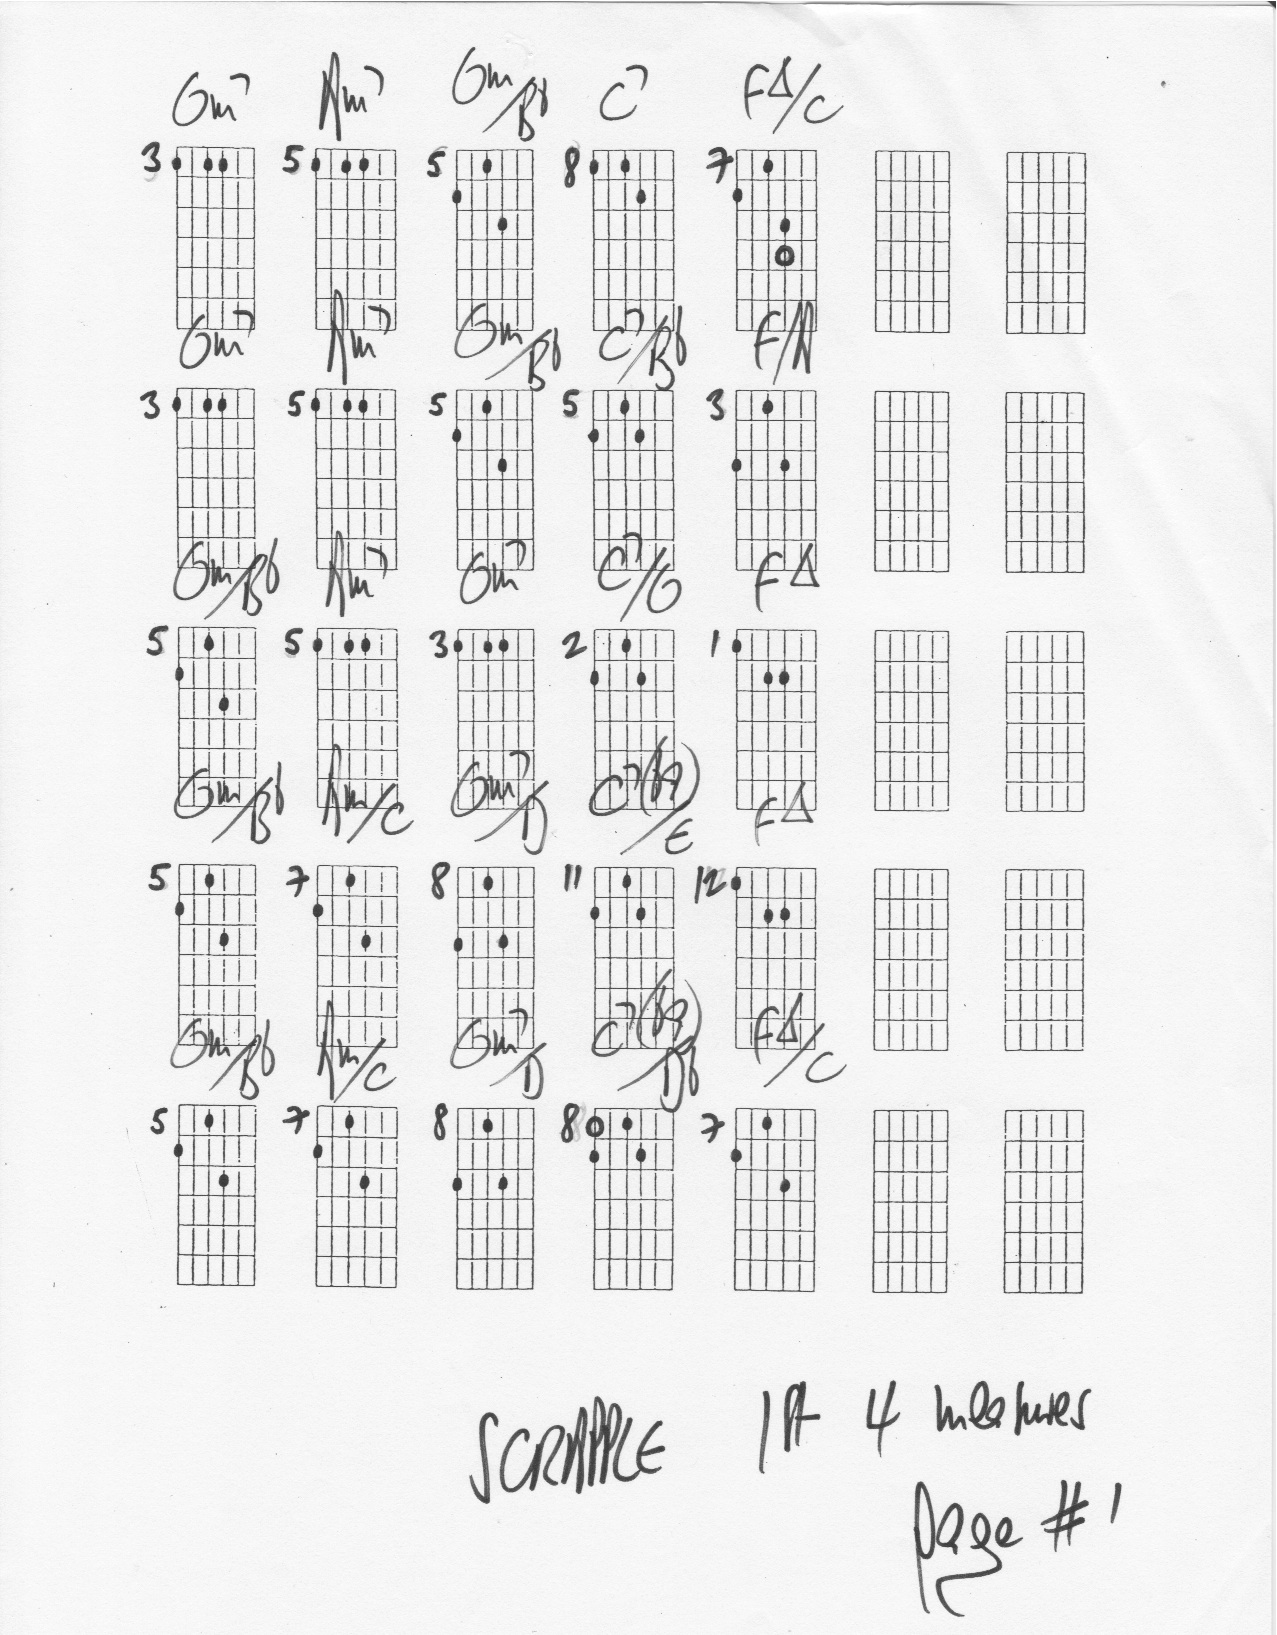 Gm7 Am7 Gm/Bb C7 FΔ/C
3 5 5 8 7
Gm7 Am7 Gm/Bb C7/Bb F/A
3 5 5 5 3
Gm/Bb Am7 Gm7 C7/G FΔ
5 5 3 2 1
Gm/Bb Am/C Gm7/D C7(b9)/E FΔ
5 7 8 11 12
Gm/Bb Am/C Gm7/D C7(b9)/Db FΔ/C
5 7 8 8 7
SCRAPPLE 1st 4 measures
page #1